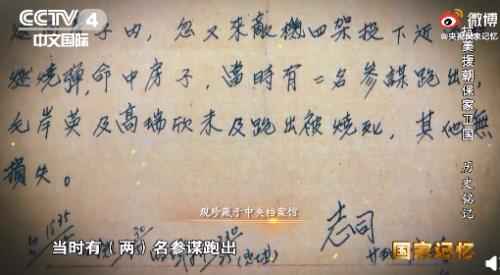 CCTV 4
中文国际
微博
@央视国家记忆
抗美援朝保家卫国 历史铭记
子内，忽又来敵機四架投下近
燃烧弹，命中房子，當時有二名參謀跑出，
毛岸英及高瑞欣未及跑出被烧死，其他無
損失。
现珍藏于中央档案馆
志司
当时有（两）名参谋跑出
国家记忆